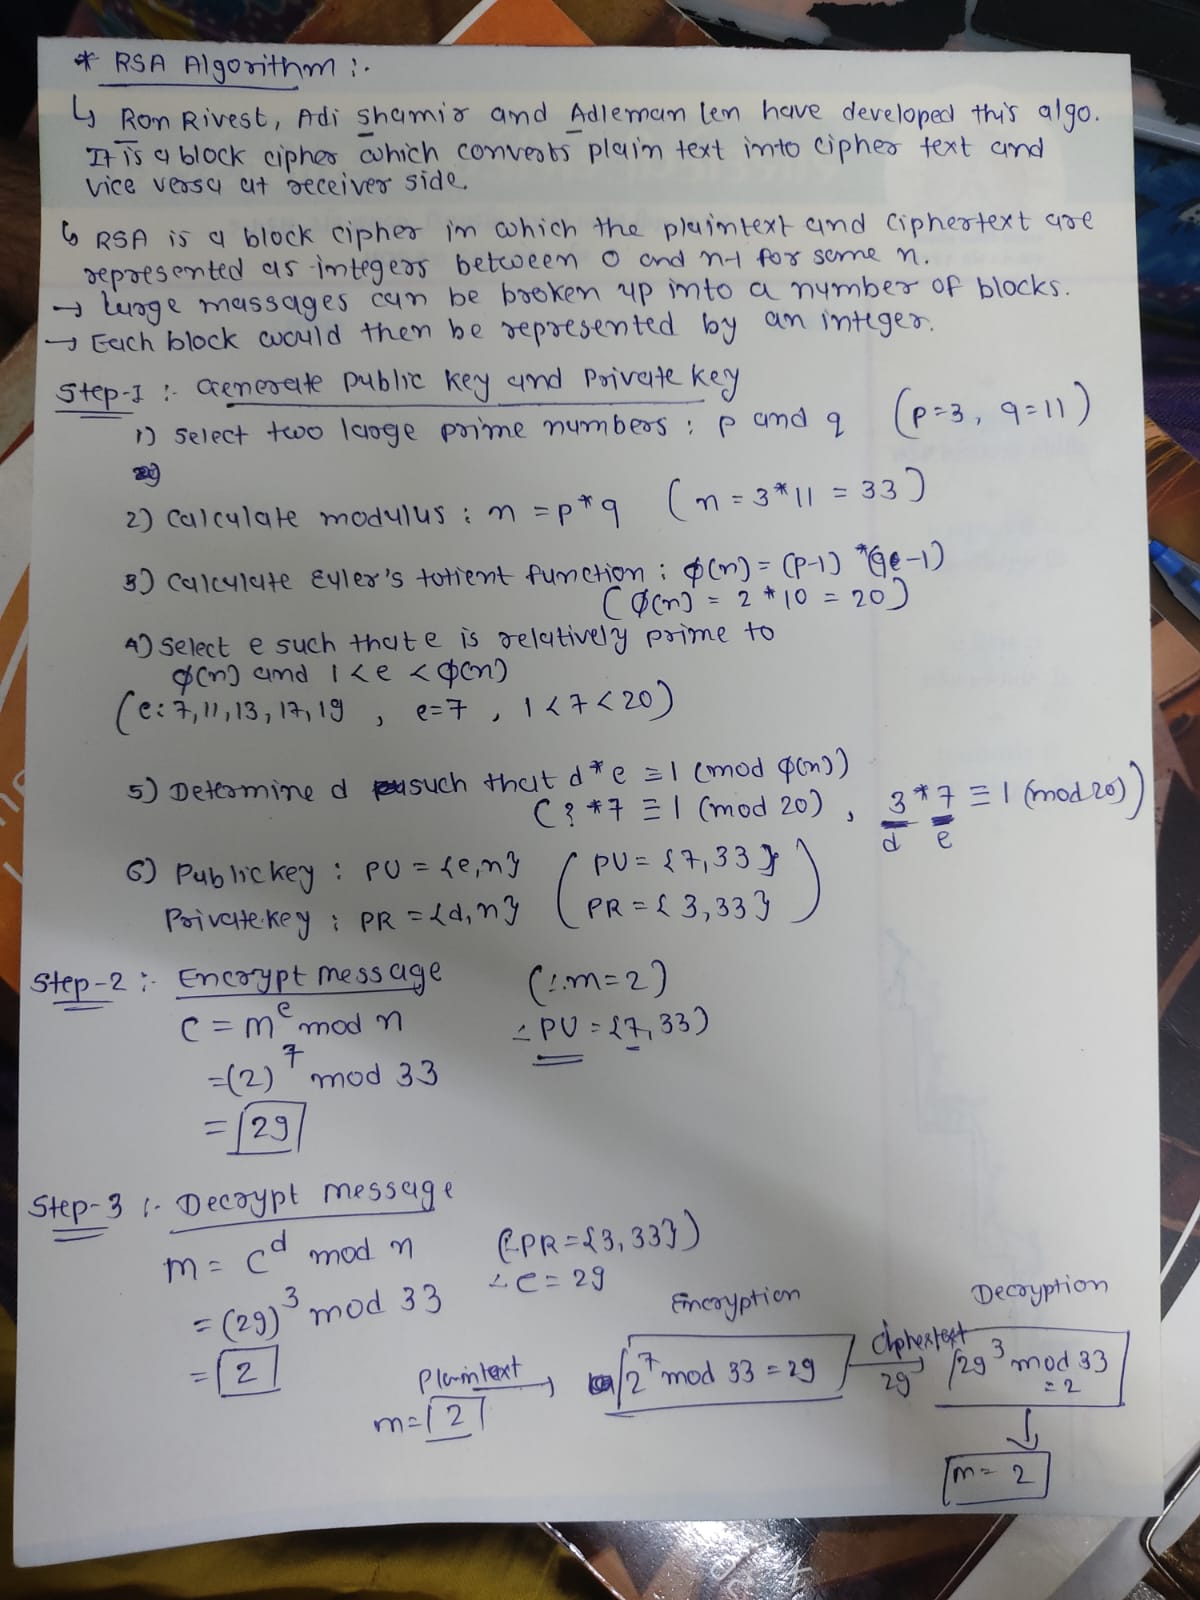 * RSA Algorithm :-
↳ Ron Rivest, Adi Shamir and Adleman Len have developed this algo.
It is a block cipher which converts plain text into cipher text and
vice versa at receiver side.
↳ RSA is a block cipher in which the plaintext and ciphertext are
represented as integers between 0 and n-1 for some n.
→ Large massages can be broken up into a number of blocks.
→ Each block would then be represented by an integer.
Step-1 :- Generate Public key and Private key
1) Select two large prime numbers : p and q (p=3, q=11)
2) Calculate modulus : n = p*q (n = 3*11 = 33)
3) Calculate Euler's totient function : φ(n) = (p-1) * (q-1)
(φ(n) = 2 * 10 = 20)
4) Select e such that e is relatively prime to
φ(n) and 1 < e < φ(n)
(e: 7, 11, 13, 17, 19 , e=7 , 1 < 7 < 20)
5) Determine d such that d * e ≡ 1 (mod φ(n))
(? * 7 ≡ 1 (mod 20) , 3 * 7 ≡ 1 (mod 20))
d e
6) Public key : PU = {e,n} (PU = {7,33}
Private key : PR = {d,n} PR = {3,33})
Step-2 :- Encrypt message (∵ m=2)
C = m^e mod n ∴ PU = {7, 33)
= (2)^7 mod 33
= 29
Step-3 :- Decrypt message
m = C^d mod n (∵ PR = {3, 33})
= (29)^3 mod 33 ∴ C = 29
= 2
Encryption Decryption
Plaintext 2^7 mod 33 = 29 Ciphertext 29^3 mod 33
m = 2 29 = 2
m = 2